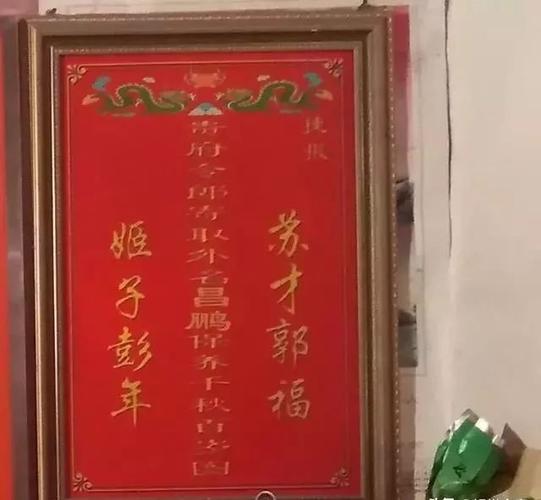 捷报
苏才郭福
贵府令郎寄取外名昌鹏保养千秋百岁图
姬子彭年